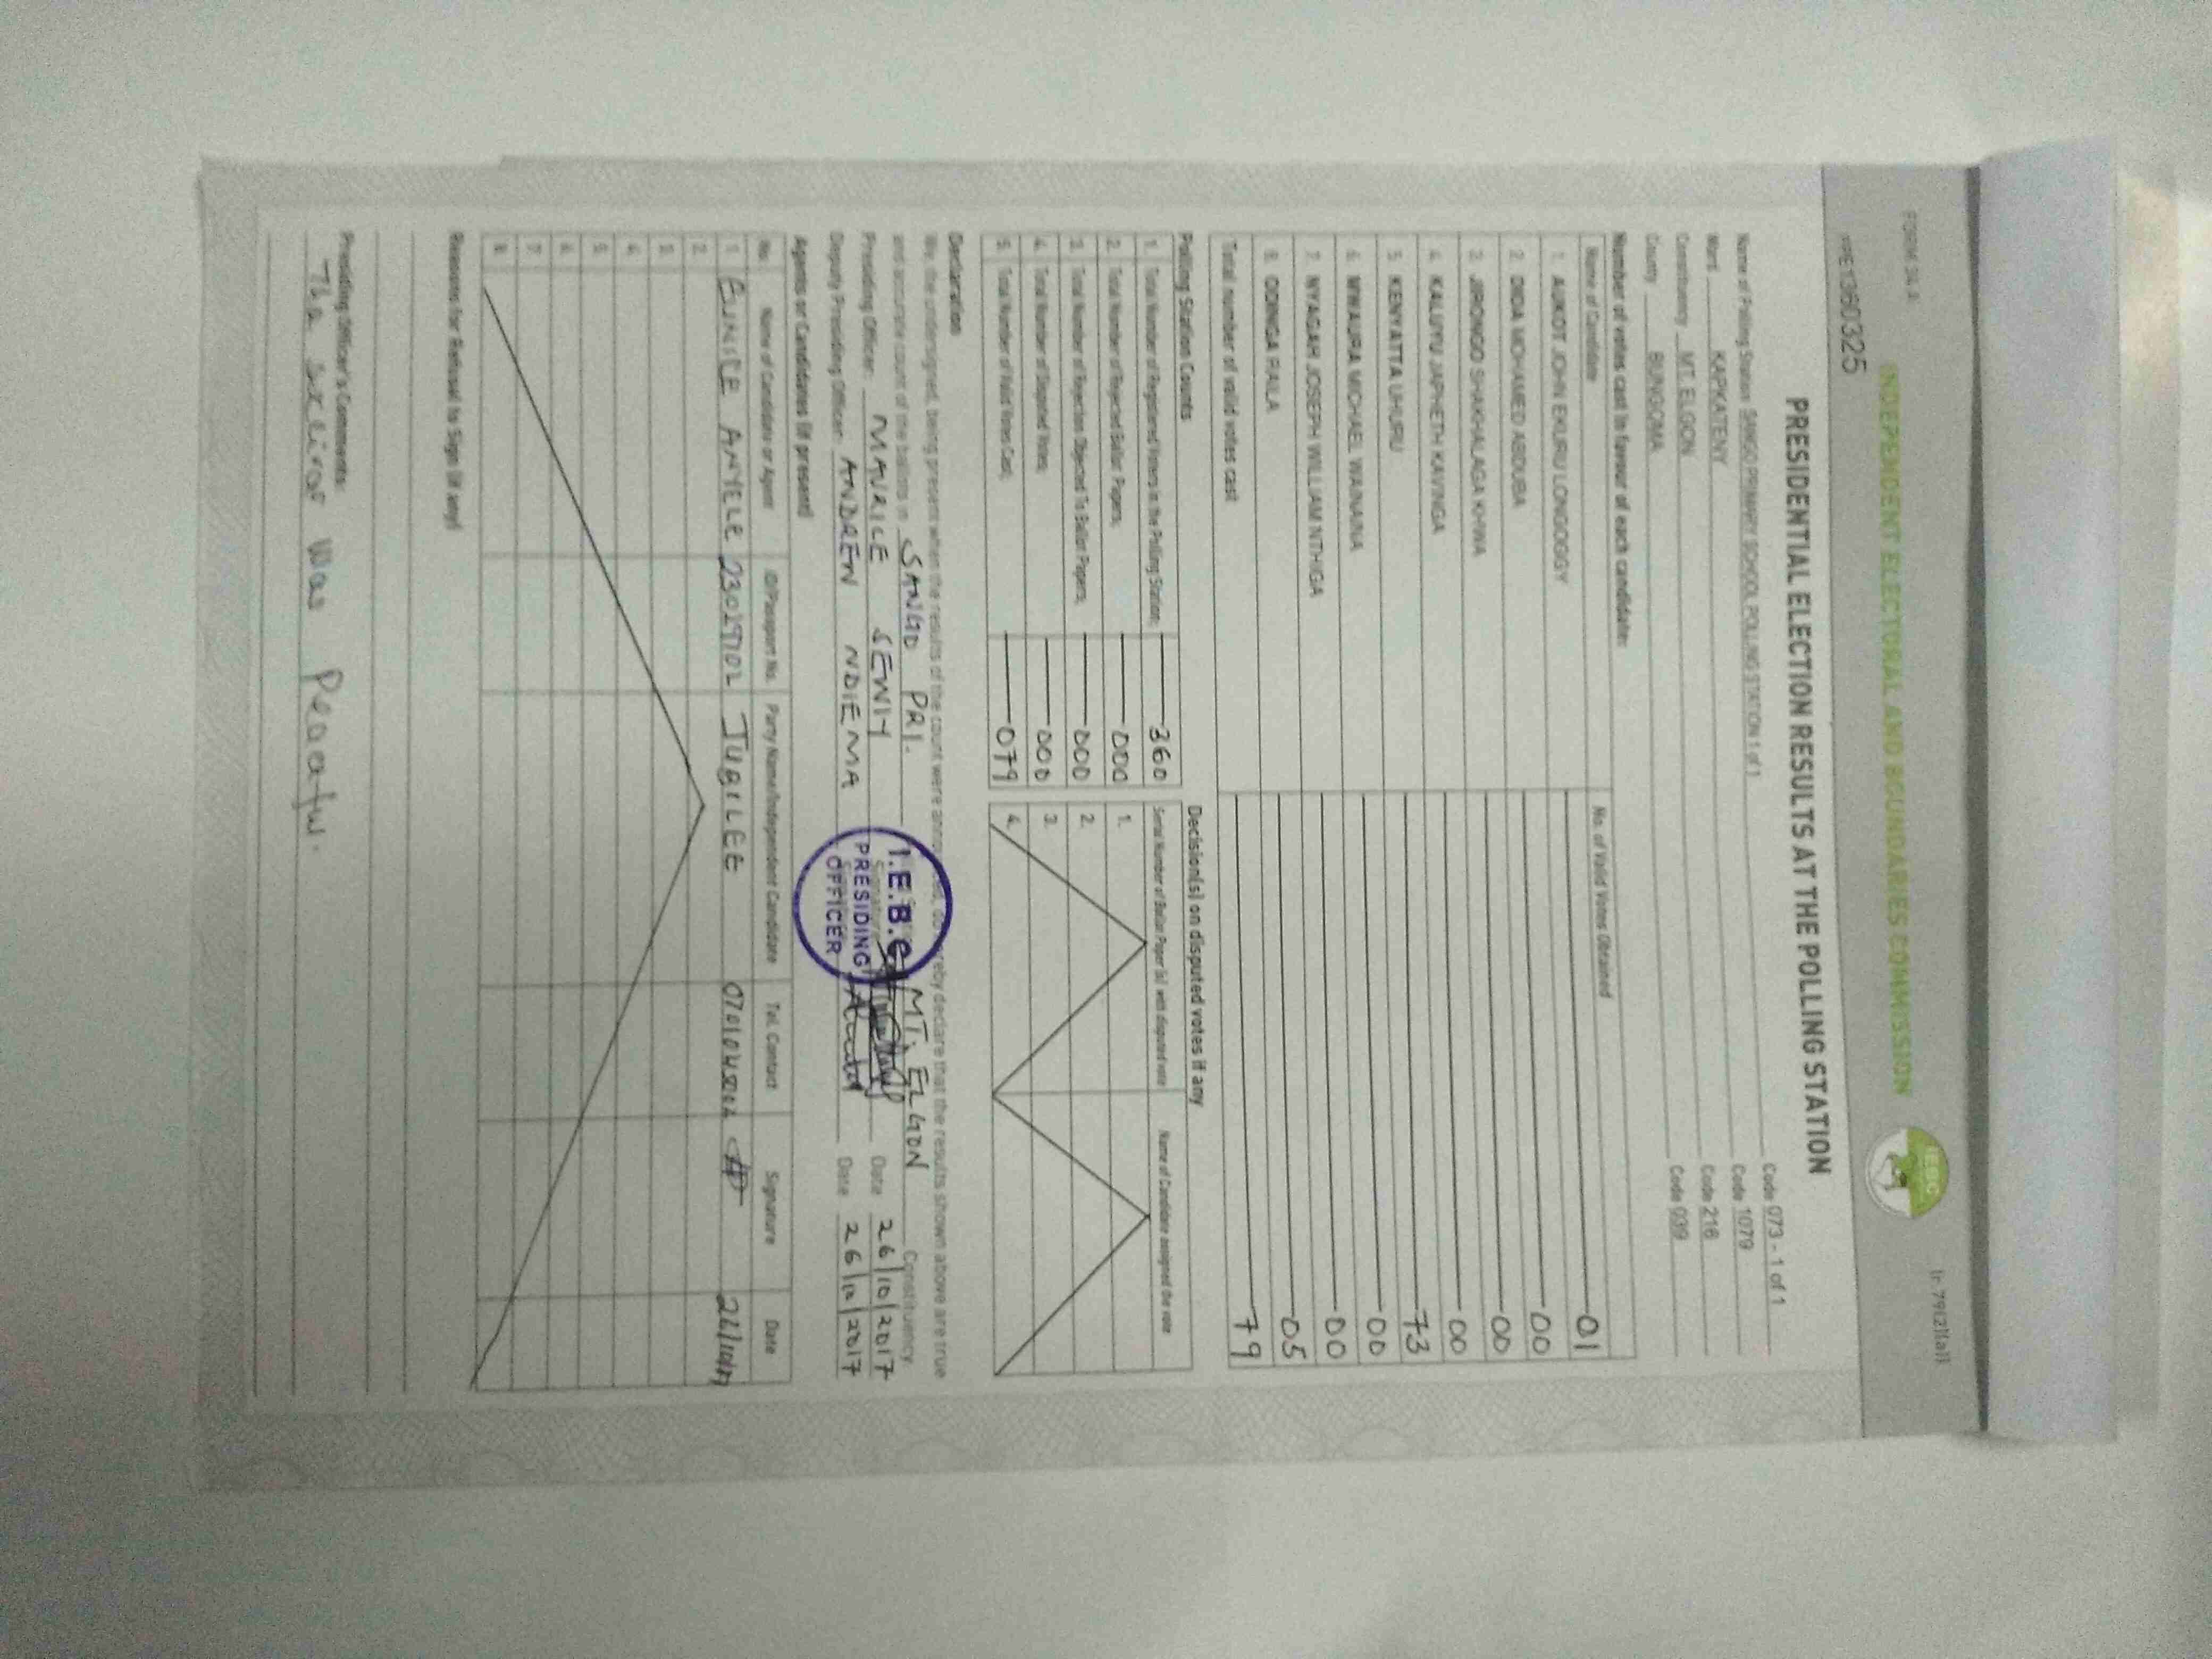 FORM 34 A
INDEPENDENT ELECTORAL AND BOUNDARIES COMMISSION
IEBC
(r. 79(2)(a))
PRESIDENTIAL ELECTION RESULTS AT THE POLLING STATION
Name of Polling Station SANGO PRIMARY SCHOOL POLLING STATION 1 of 1 Code 073 - 1 of 1
Ward KAPKATENY Code 1079
Constituency MT. ELGON Code 216
County BUNGOMA Code 039
Number of votes cast in favour of each candidate:
Name of Candidate No. of Valid Votes Obtained
1. AUKOT JOHN EKURU LONGOGGY 01
2. DIDA MOHAMED ABDUBA 00
3. JIRONGO SHAKHALAGA KHWA 00
4. KALUYU JAPHETH KAVINGA 00
5. KENYATTA UHURU 73
6. MWAURA MICHAEL WAINAINA 00
7. NYAGAH JOSEPH WILLIAM NTHIGA 00
8. ODINGA RAILA 05
Total number of valid votes cast 79
Polling Station Counts
1. Total Number of Registered Voters in the Polling Station; 360
2. Total Number of Rejected Ballot Papers; 000
3. Total Number of Rejection Objected To Ballot Papers; 000
4. Total Number of Disputed Votes; 000
5. Total Number of Valid Votes Cast; 079
Decision(s) on disputed votes if any
Serial Number of Ballot Paper (s) with disputed vote Name of Candidate assigned the vote
1.
2.
3.
4.
Declaration
We, the undersigned, being present when the results of the count were announced, do hereby declare that the results shown above are true
and accurate count of the ballots in SANGO PRI. MT. ELGON Constituency
Presiding Officer: MAURICE SEWIH Signature Date 26/10/2017
Deputy Presiding Officer: ANDREW NDIEMA Date 26/10/2017
I.E.B.C
PRESIDING
OFFICER
Agents or Candidates (if present)
No. Name of Candidate or Agent ID/Passport No. Party Name/Independent Candidate Tel. Contact Signature Date
1 JUBILEE
2
3
4
5
6
7
8
Reasons for Refusal to Sign (if any)
Presiding Officer's Comments:
was Peaceful.